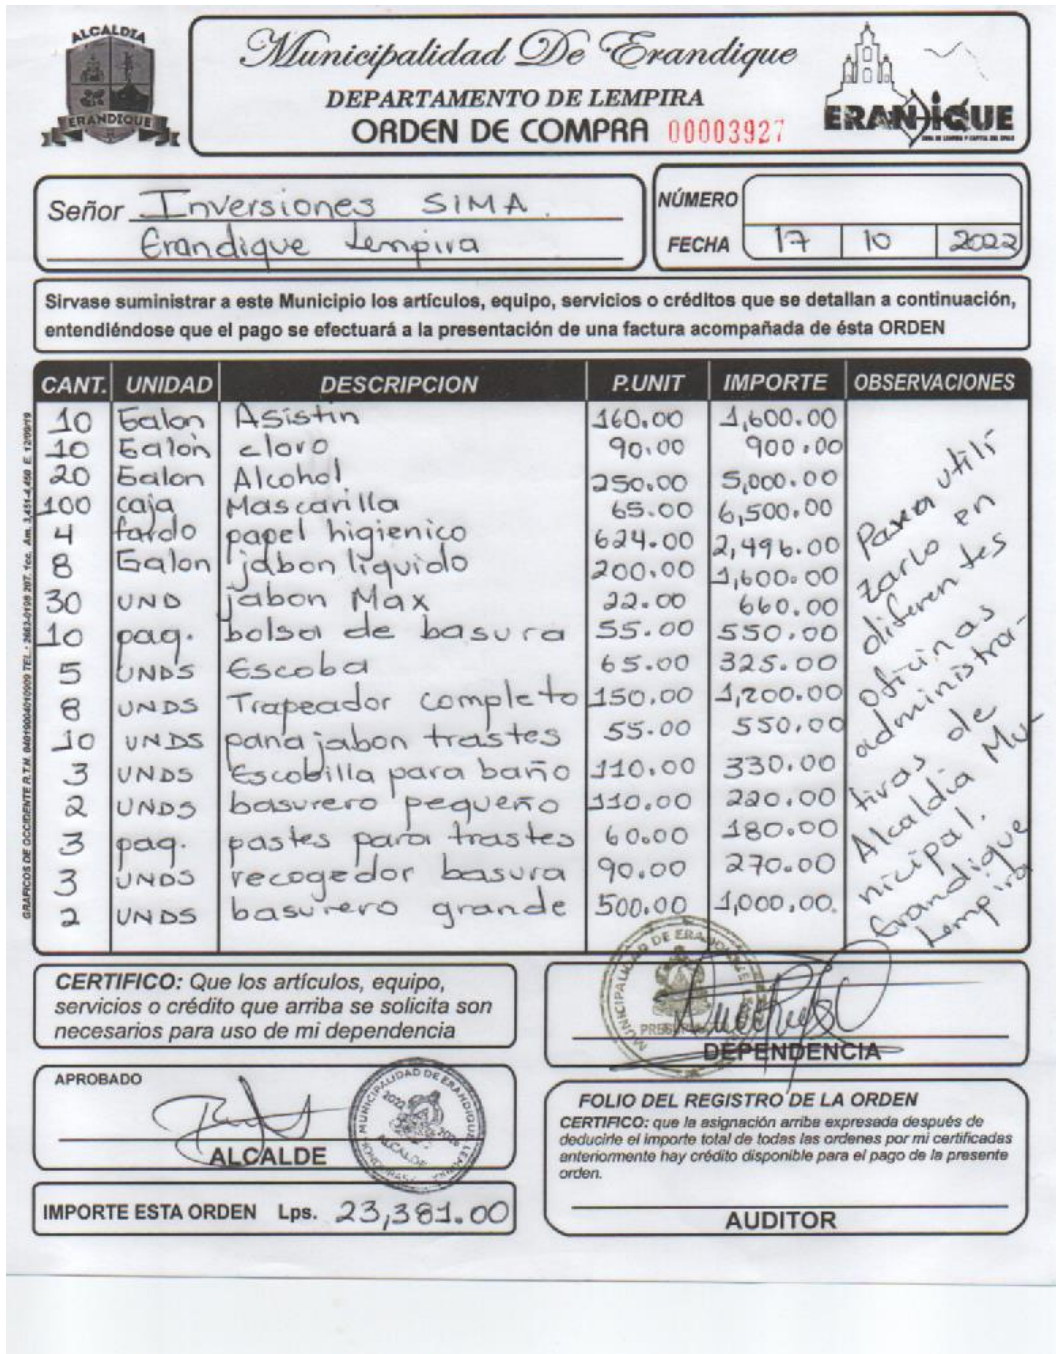 ALCALDIA
ERANDIQUE
Municipalidad De Erandique
DEPARTAMENTO DE LEMPIRA
ORDEN DE COMPRA 00003927
ERANDIQUE
Señor Inversiones SIMA.
Erandique Lempira
NÚMERO
FECHA 17 10 2022
Sirvase suministrar a este Municipio los artículos, equipo, servicios o créditos que se detallan a continuación,
entendiéndose que el pago se efectuará a la presentación de una factura acompañada de ésta ORDEN
CANT. UNIDAD DESCRIPCION P.UNIT IMPORTE OBSERVACIONES
10 Galon Asistin 160.00 1,600.00
10 Galon cloro 90.00 900.00
20 Galon Alcohol 250.00 5,000.00
100 caja Mascarilla 65.00 6,500.00
4 fardo papel higienico 624.00 2,496.00
8 Galon jabon liquido 200.00 1,600.00
30 UND jabon Max 22.00 660.00
10 paq. bolsa de basura 55.00 550.00
5 UNDS Escoba 65.00 325.00
8 UNDS Trapeador completo 150.00 1,200.00
10 UNDS pana jabon trastes 55.00 550.00
3 UNDS Escobilla para baño 110.00 330.00
2 UNDS basurero pequeño 110.00 220.00
3 paq. pastes para trastes 60.00 180.00
3 UNDS recogedor basura 90.00 270.00
2 UNDS basurero grande 500.00 1,000.00.
Para utili
zarlo en
diferentes
oficinas
administra-
tivas de
Alcaldia Mu-
nicipal.
Erandique
Lempira
GRAFICOS DE OCCIDENTE R.T.N.
CERTIFICO: Que los artículos, equipo,
servicios o crédito que arriba se solicita son
necesarios para uso de mi dependencia
MUNICIPALIDAD DE ERANDIQUE
DEPENDENCIA
APROBADO
MUNICIPALIDAD DE ERANDIQUE LEMPIRA
2022 2026
ALCALDE
HONDURAS
ALCALDE
IMPORTE ESTA ORDEN Lps. 23,381.00
FOLIO DEL REGISTRO DE LA ORDEN
CERTIFICO: que la asignación arriba expresada después de
deducirle el importe total de todas las ordenes por mi certificadas
anteriormente hay crédito disponible para el pago de la presente
orden.
AUDITOR